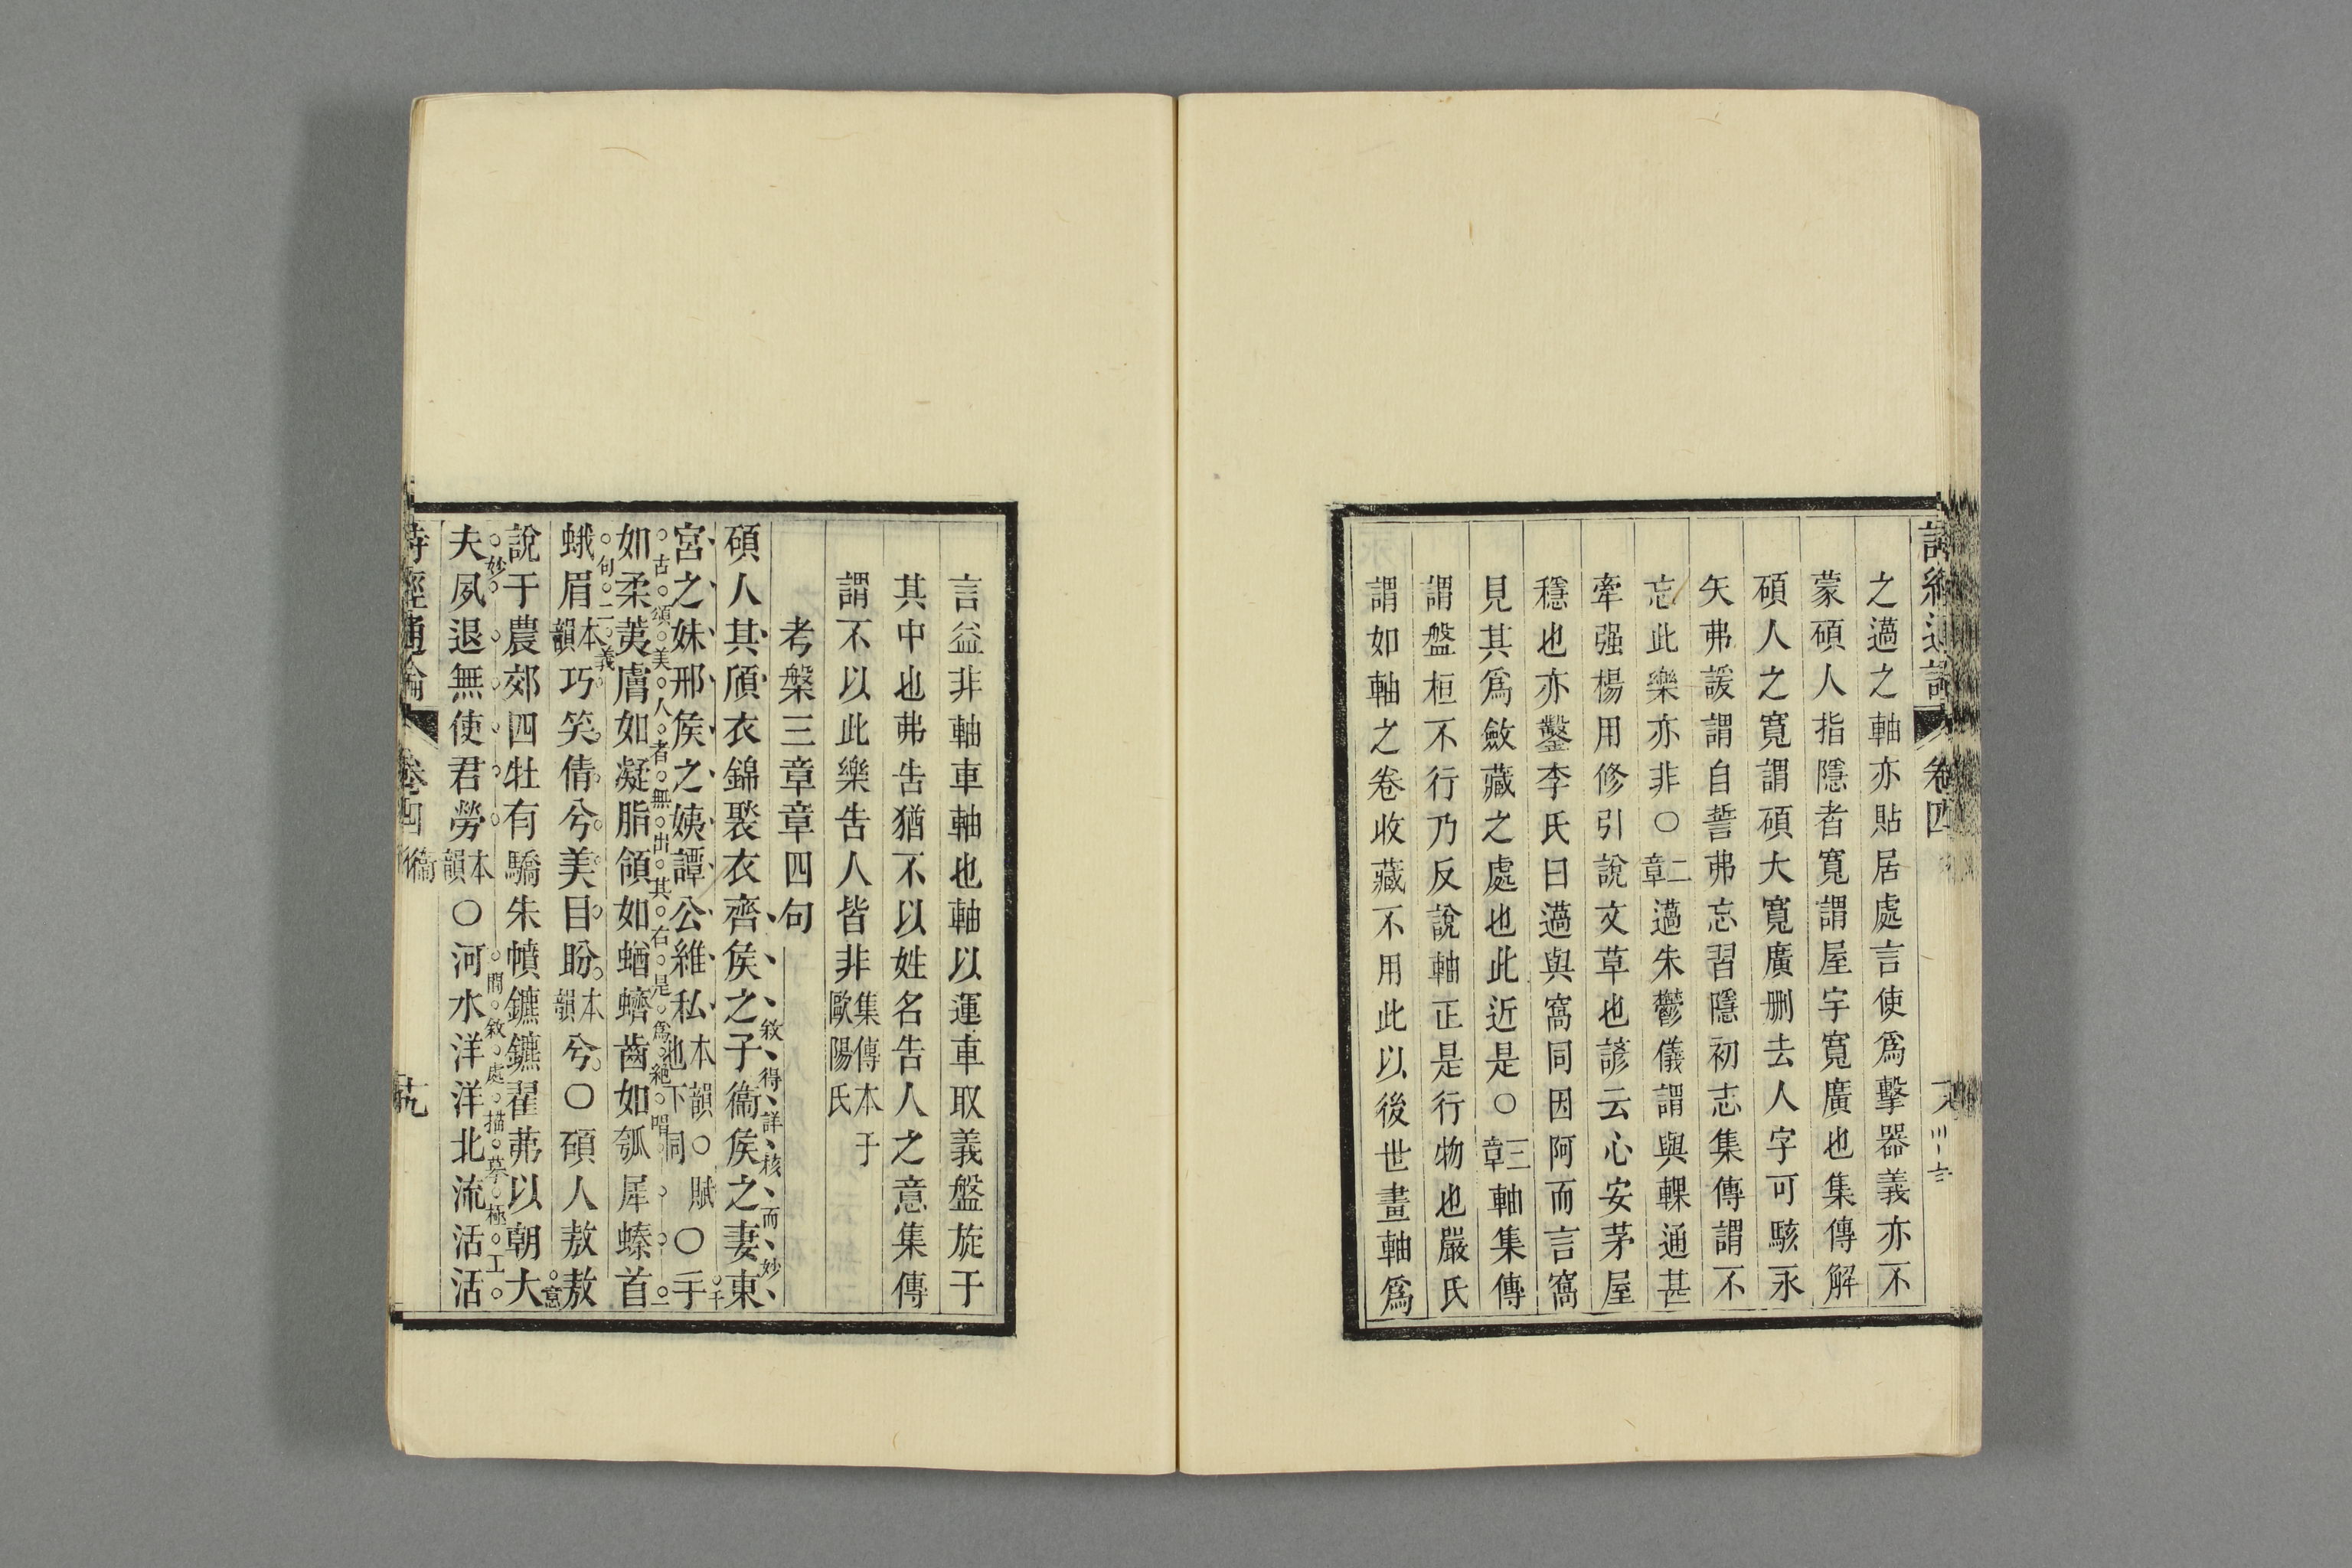 詩經通論 卷四
之薖之軸亦貼居處言使爲擊器義亦不
蒙碩人指隱者寬謂屋宇寬廣也集傳解
碩人之寬謂碩大寬廣刪去人字可駭永
矢弗諼謂自誓弗忘習隱初志集傳謂不
忘此樂亦非〇二章薖朱鬱儀謂與輠通甚
牽强楊用修引說文草也諺云心安茅屋
穩也亦鑿李氏曰薖與窩同因阿而言窩
見其爲斂藏之處也此近是〇三章軸集傳
謂盤桓不行乃反說軸正是行物也嚴氏
謂如軸之卷收藏不用此以後世畫軸爲
言益非軸車軸也軸以運車取義盤旋于
其中也弗告猶不以姓名告人之意集傳
謂不以此樂告人皆非集傳本于歐陽氏
考槃三章章四句
碩人其頎衣錦褧衣齊侯之子衞侯之妻東
敘得詳核而妙
宮之妹邢侯之姨譚公維私本韻〇賦也下同〇手
千古頌美人者無出其右是爲絕唱
如柔荑膚如凝脂領如蝤蠐齒如瓠犀螓首
一句二義
蛾眉本韻巧笑倩兮美目盼本韻兮〇碩人敖敖
意妙
說于農郊四牡有驕朱幩鑣鑣翟茀以朝大
閒敘處描摹極工
夫夙退無使君勞本韻〇河水洋洋北流活活
詩經通論 卷四 衞